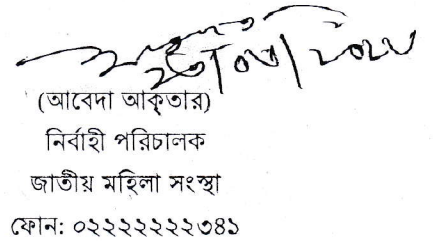 (আবেদা আক্তার)
নির্বাহী পরিচালক
জাতীয় মহিলা সংস্থা
ফোন: ০২২২২২২২৩৪১